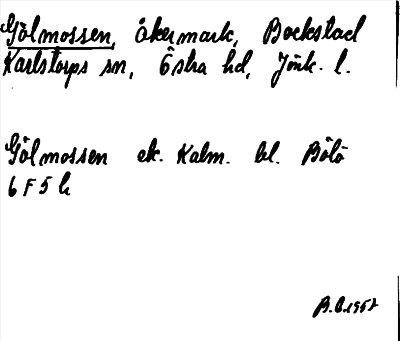 Gölmossen, åkermark, Bockstad
Karlstorps sn, Östra hd, Jönk. l.
Gölmossen ek. Kalm. bl. Bölö
6 F 5 h
B.E. 1957